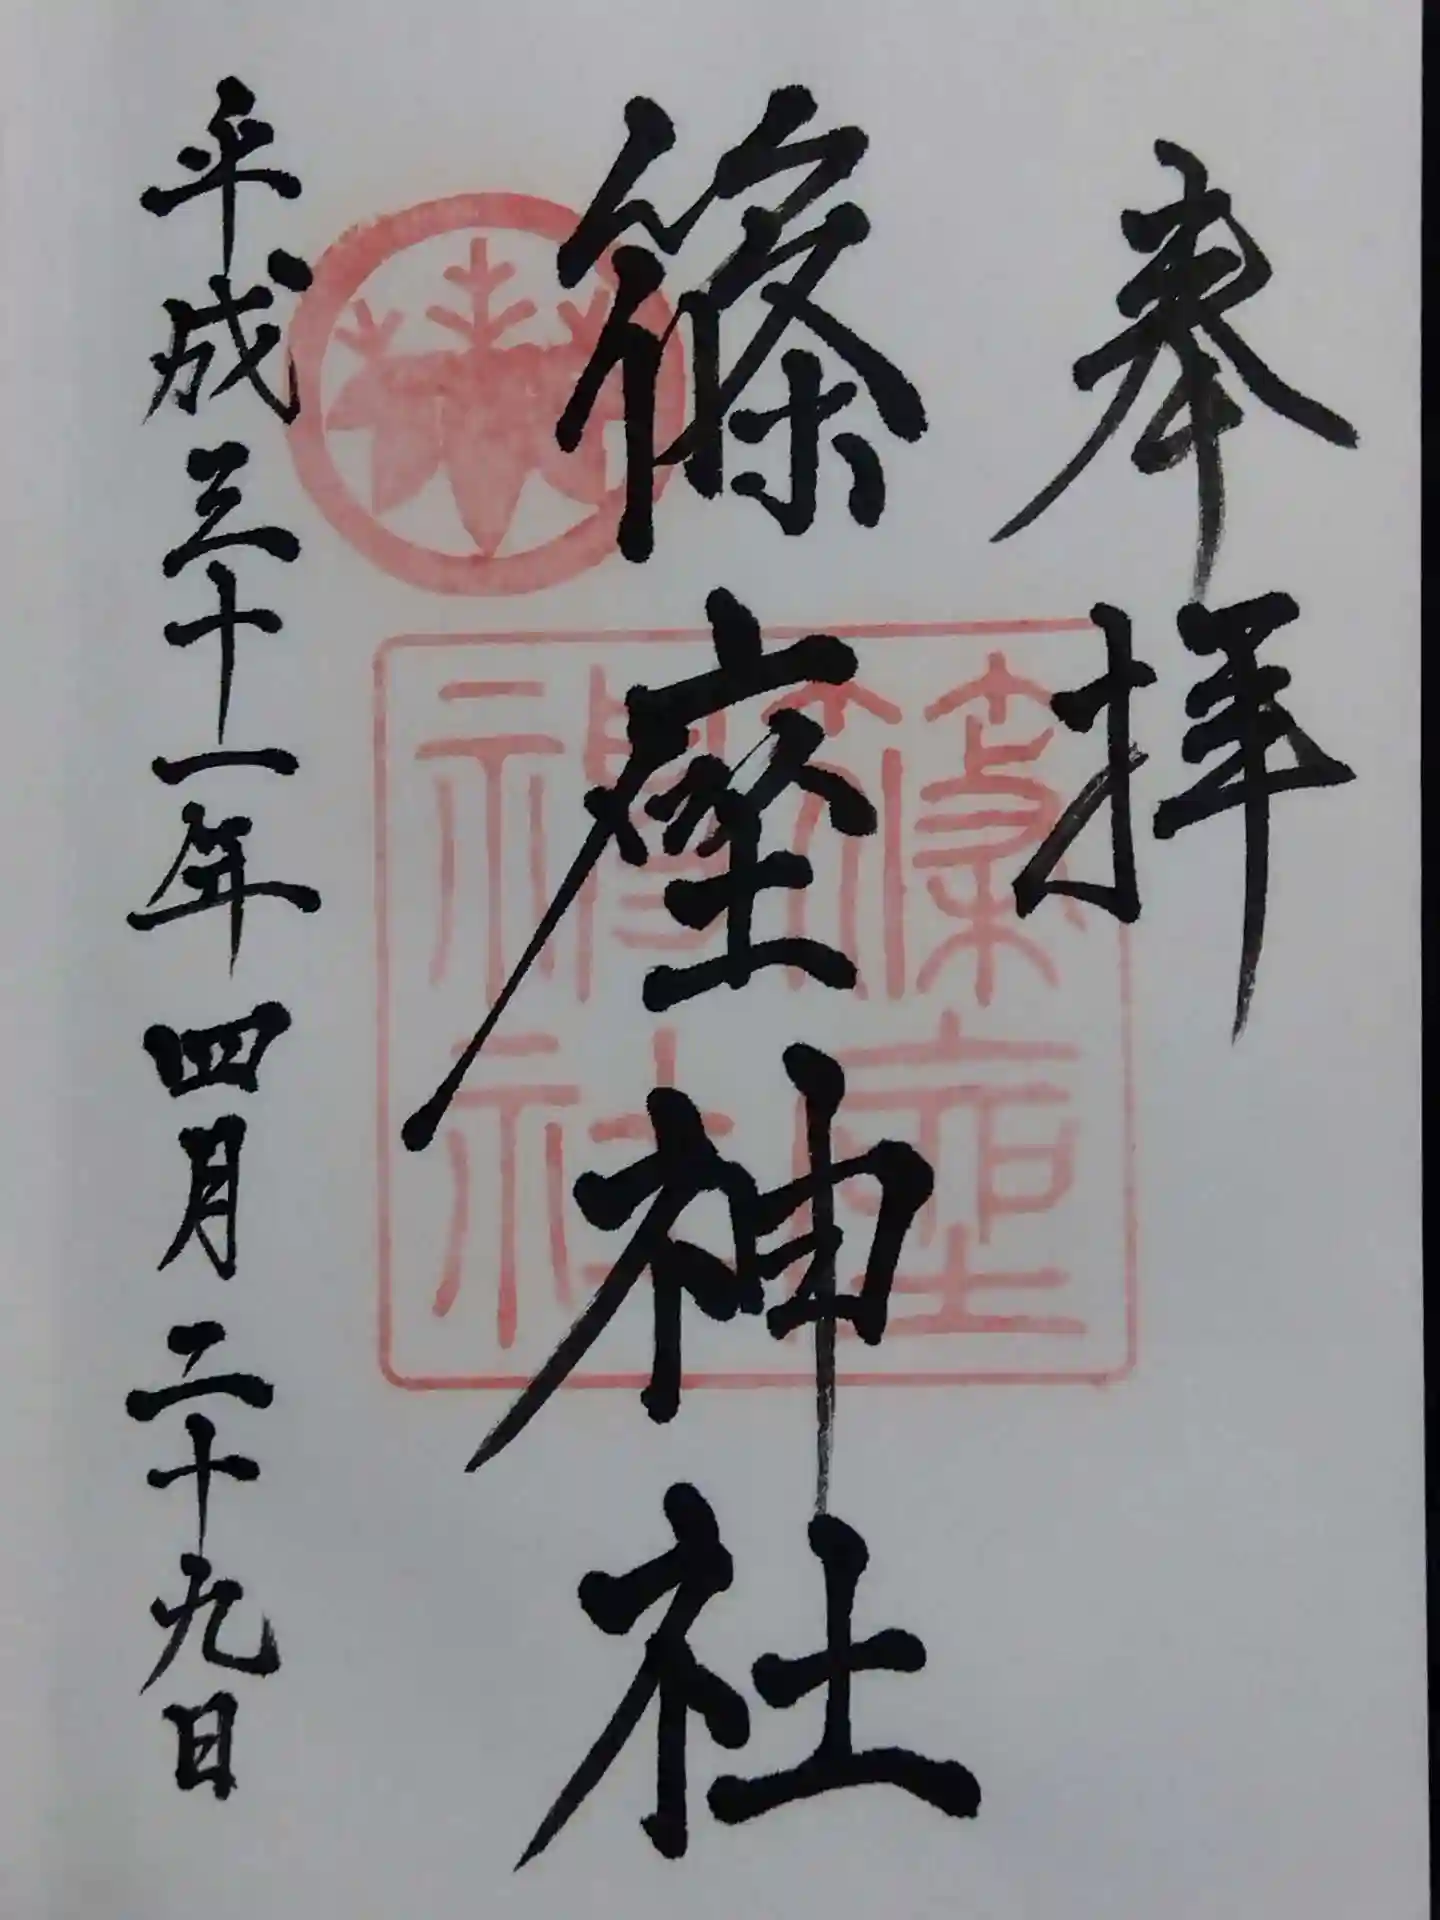 奉拝
篠座神社
篠座
神社
平成三十一年四月二十九日